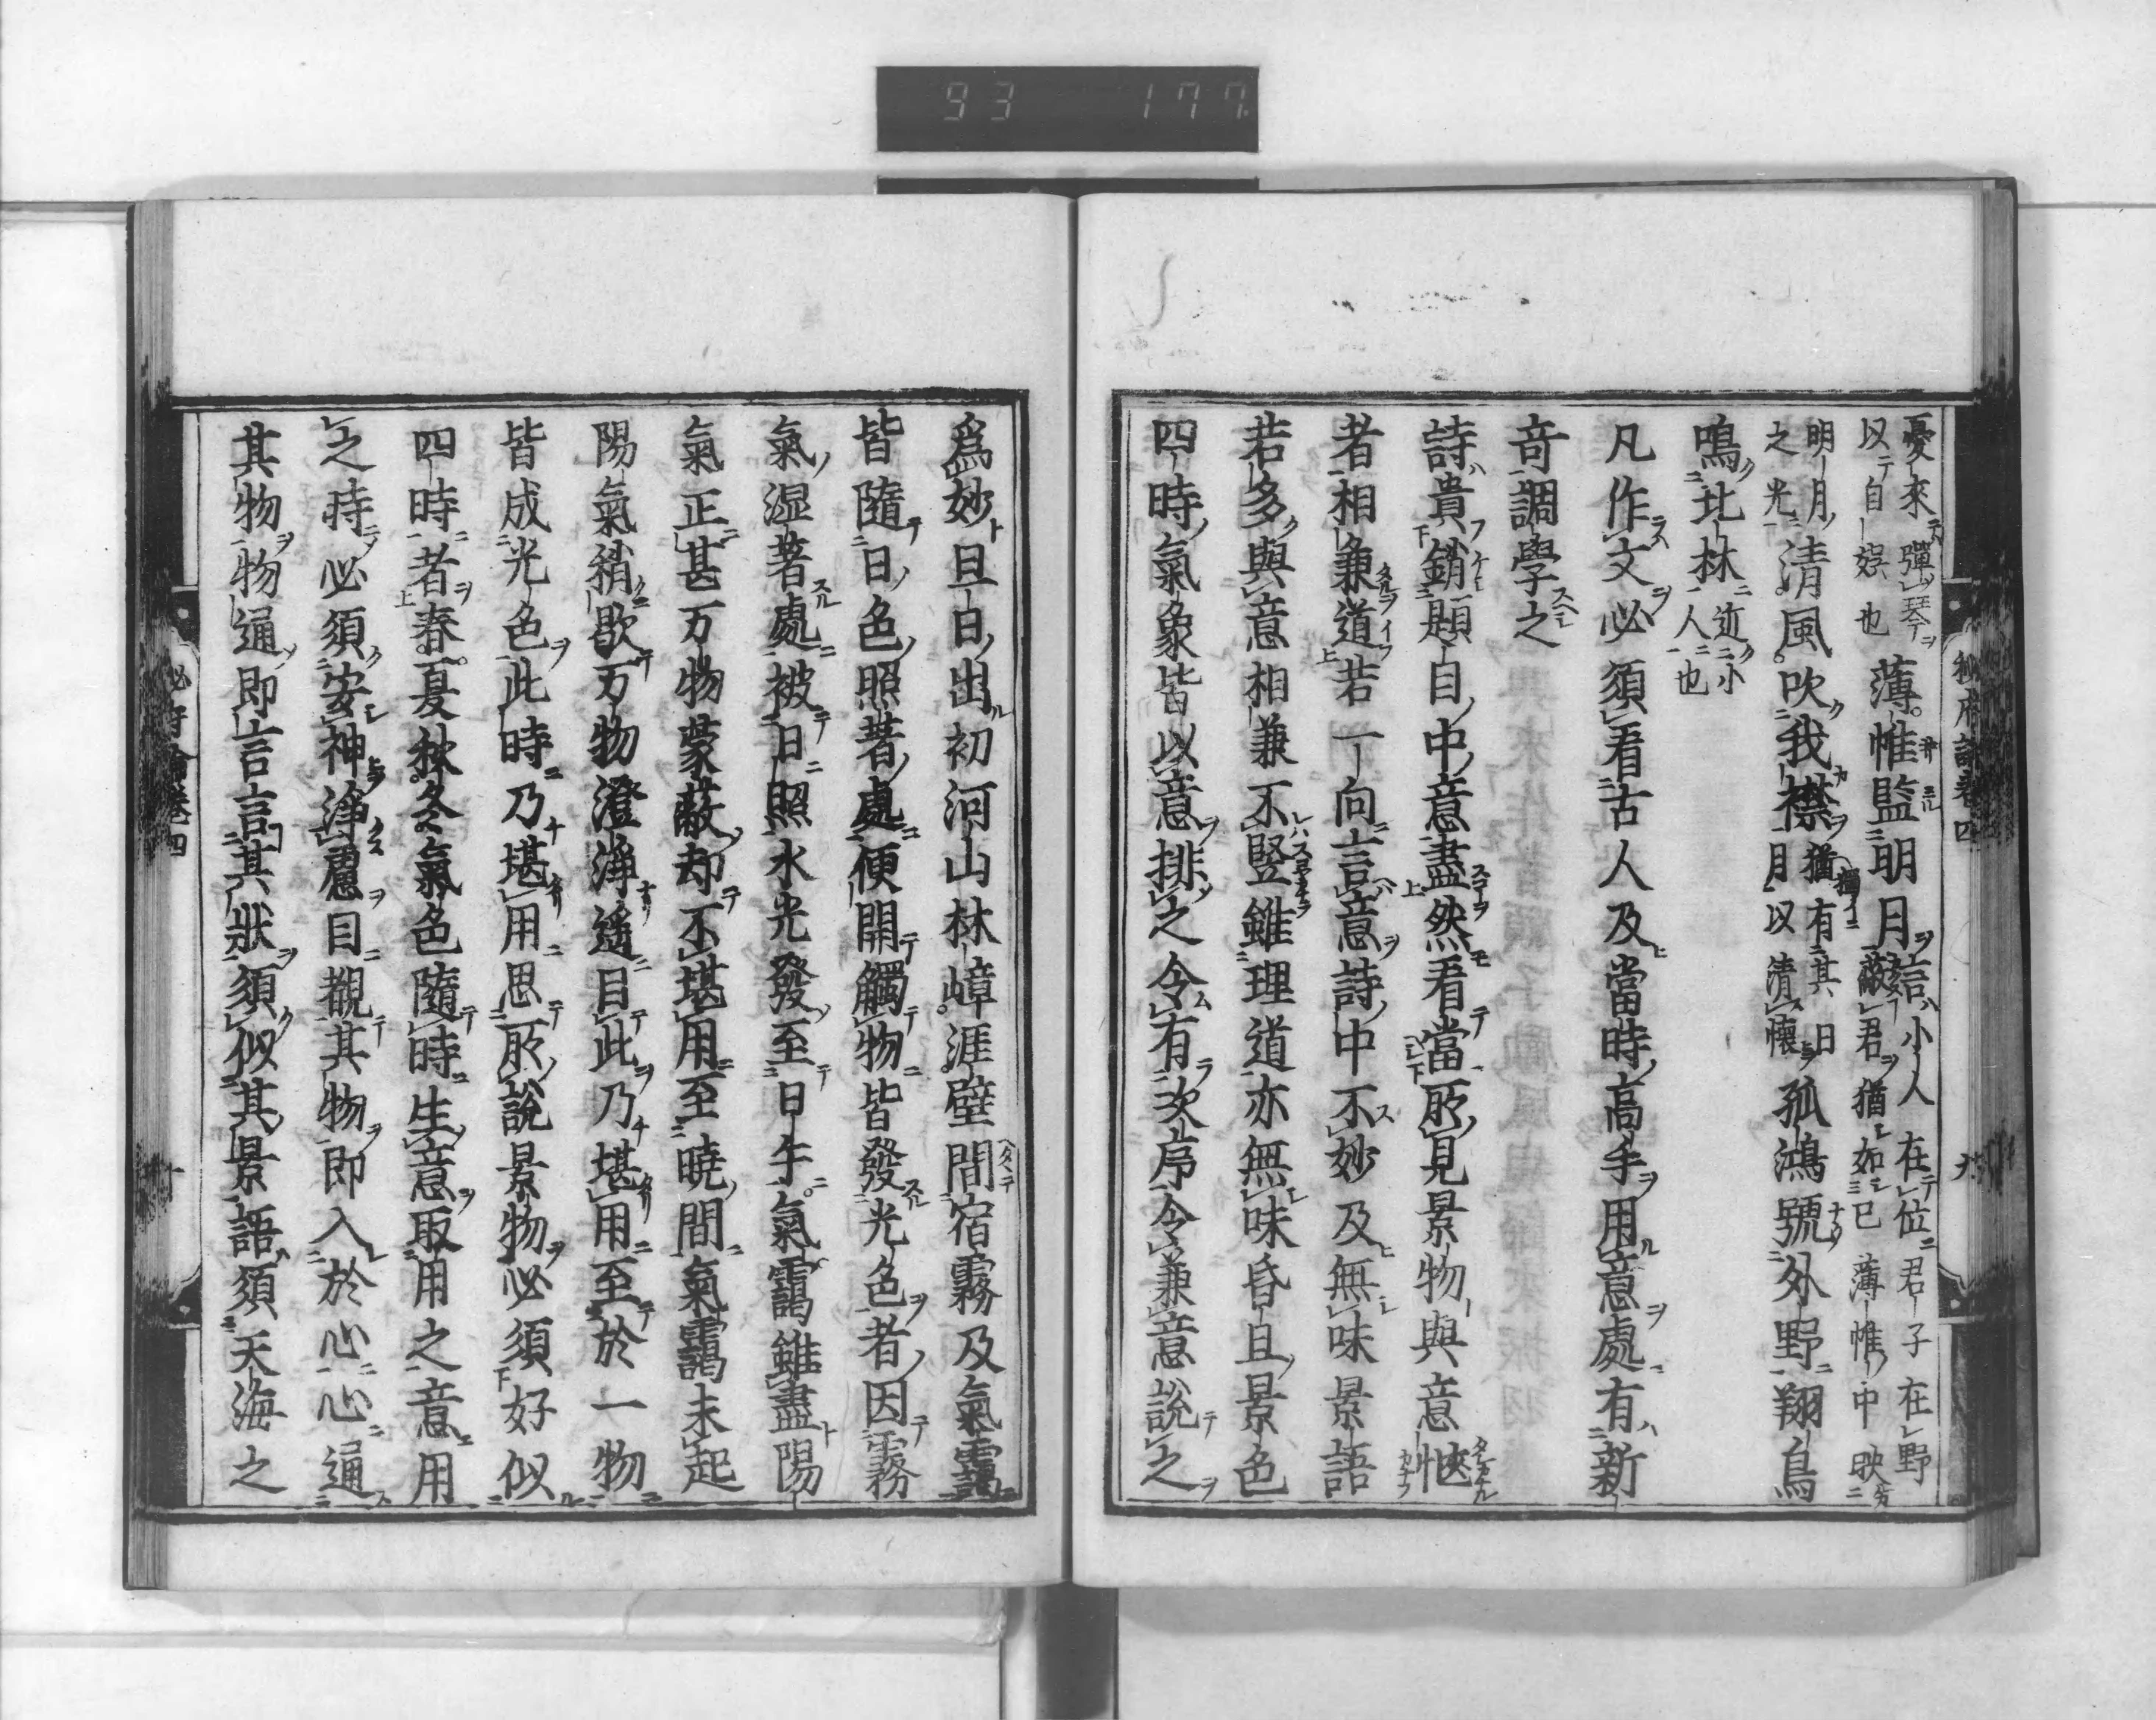 93 177
秘府論卷四
憂來彈琴
以自娯也
薄帷監明月
言小人在位君子在野
蔽君猶如已薄帷中映
明月
之光
清風吹我襟
猶有其日
月以清懷
孤鴻號外野翔鳥
鳴北林
近小
人也
凡作文必須看古人及當時高手用意處有新
奇調學之
詩貴銷題目中意盡然看當所見景物與意愜
者相兼道若一向言意詩中不妙及無味景語
若多與意相兼不竪雖理道亦無味昏旦景色
四時氣象皆以意排之令有次序令兼意說之
爲妙旦日出初河山林嶂涯壁間宿霧及氣靄
皆隨日色照著處便開觸物皆發光色者因霧
氣湿著處被日照水光發至日午氣靄雖盡陽
氣正甚万物蒙蔽却不堪用至曉間氣靄未起
陽氣稍歇万物澄淨遥目此乃堪用至於一物
皆成光色此時乃堪用思所說景物必須好似
四時者春夏秋冬氣色隨時生意取用之意用
之時必須安神淨慮目覩其物即入於心心通
其物物通即言言其狀須似其景語須天海之
必府論卷四
十